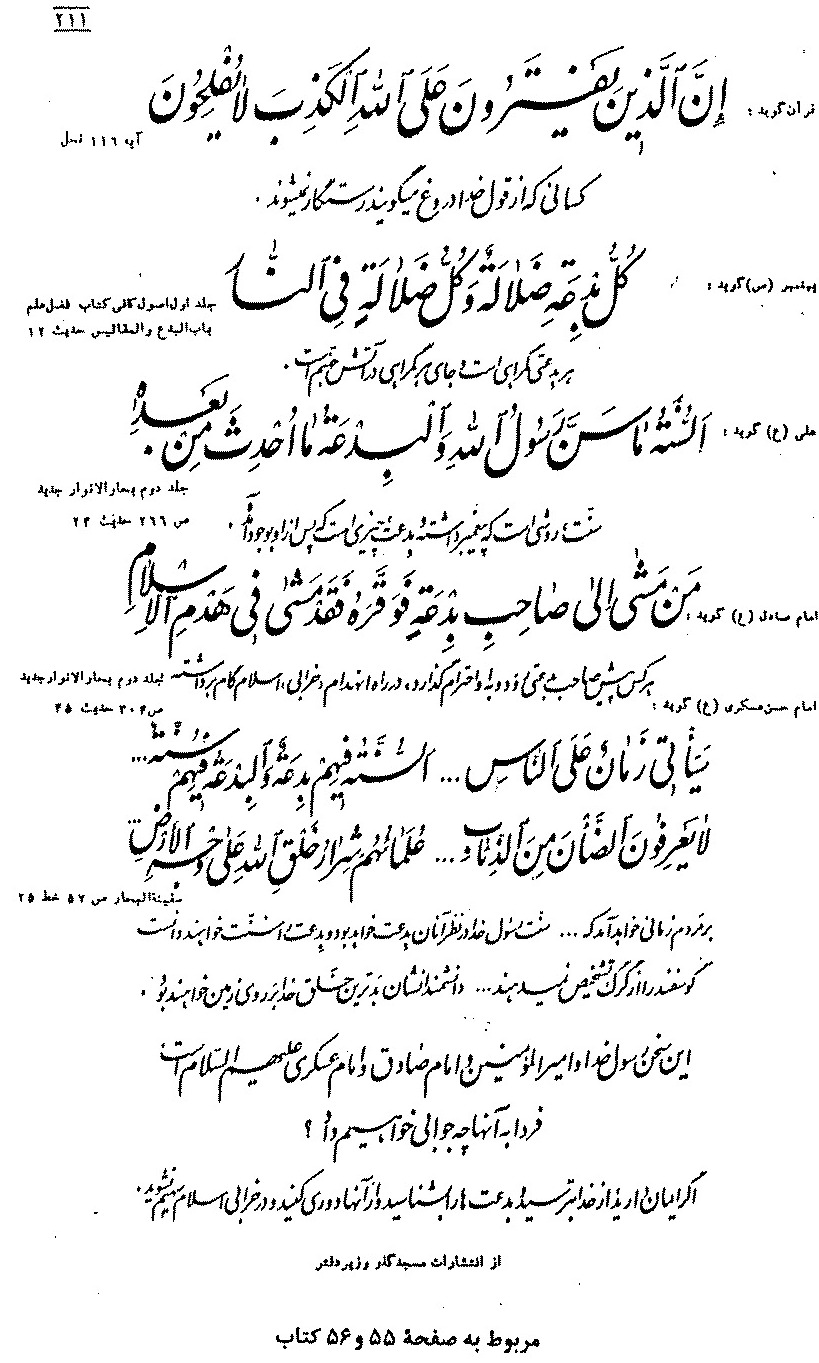 ٢١١
قرآن گوید : إِنَّ ٱلَّذِینَ یَفْتَرُونَ عَلَی ٱللهِ ٱلْکَذِبَ لاٰیُفْلِحُونَ
آیه ١١٦ نحل
کسانی که از قول خدا دروغ میگویند رستگار نمیشوند .
پیغمبر (ص) گوید : کُلُّ بِدْعَةٍ ضَلاٰلَةٌ وَکُلُّ ضَلاٰلَةٍ فِی ٱلنّٰار
جلد اول اصول کافی کتاب فضل علم
باب البدع والمقالیس حدیث ١٢
هر بدعتی گمراهی است و جای هر گمراهی در آتش جهنم است .
علی (ع) گوید : اَلسُّنَّةُ مٰا سَنَّ رَسُولُ ٱللهِ وَٱلْبِدْعَةُ مٰا اُحْدِثَ مِنْ بَعْدِهِ .
جلد دوم بحارالانوار جدید
ص ٢٦٦ حدیث ٢٣
سنّت روشی است که پیغمبر داشته و بدعت چیزی است که پس از او بوجود آمده .
امام صادق (ع) گوید : مَنْ مَشٰی اِلیٰ صٰاحِبِ بِدْعَةٍ فَوَقَّرَهُ فَقَدْ مَشٰی فِی هَدْمِ ٱلْاِسْلاٰمِ
هر کس پیش صاحب بدعتی رود و به او احترام گذارد، در راه انهدام و خرابی اسلام گام برداشته
جلد دوم بحارالانوار جدید
ص ٣٠٤ حدیث ٤٥
امام حسن عسکری (ع) گوید :
سَیَأْتی زَمٰانٌ عَلَی النّٰاسِ ... اَلسُّنَّةُ فِیهِمْ بِدْعَةٌ وَٱلْبِدْعَةُ فِیهِمْ سُنَّةٌ ...
لاٰیَعْرِفُونَ ٱلضَّأْنَ مِنَ ٱلذِّئٰابِ ... عُلَمٰائُهُمْ شِرٰارُ خَلْقِ ٱللهِ عَلیٰ وَجْهِ ٱلْأَرْضِ ...
سفینةالبحار ص ٥٧ خط ٢٥
بر مردم زمانی خواهد آمد که ... سنّت رسول خدا در نظر آنان بدعت خواهد بود و بدعت را سنّت خواهند دانست
گوسفند را از گرگ تشخیص نمیدهند ... دانشمندانشان بدترین خلق خدا بر روی زمین خواهند بود .
این سخن رسول خدا و امیرالمؤمنین و امام صادق و امام عسکری علیهم السّلام است
فردا به آنها چه جوابی خواهیم داد ؟
اگر ایمان دارید از خدا بترسید و بدعت ها را بشناسید و از آنها دوری کنید و در خرابی اسلام سهیم نشوید .
از انتشارات مسجد گذر وزیر دفتر
مربوط به صفحهٔ ۵۵ و ۵۶ کتاب